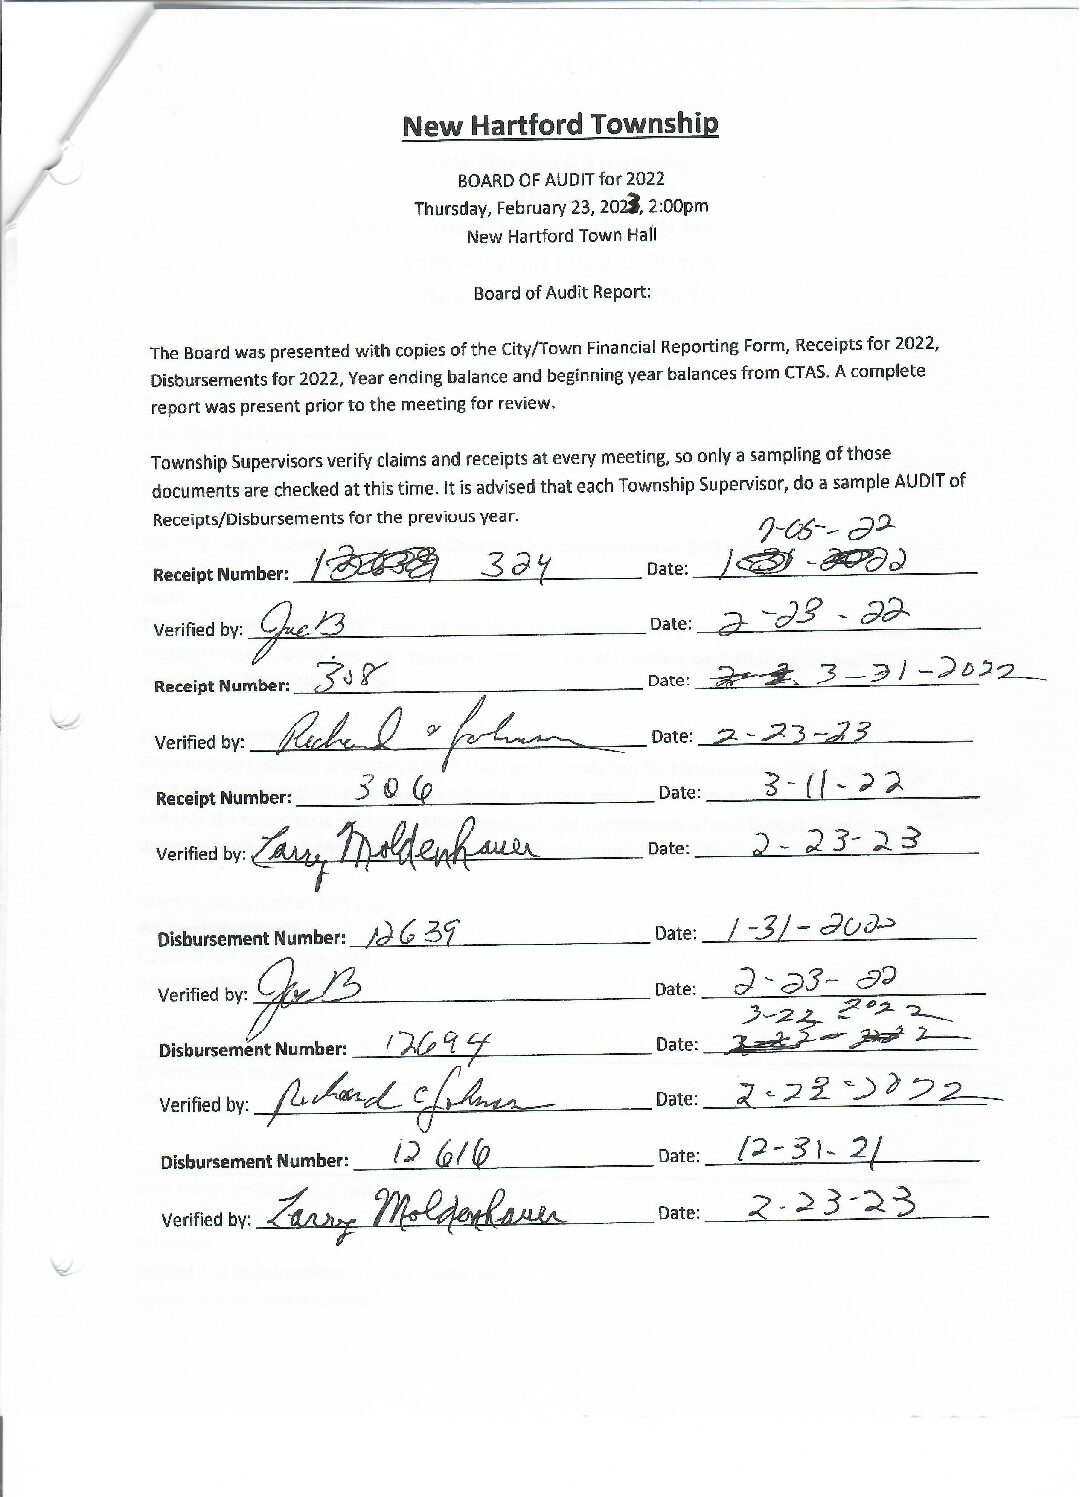 New Hartford Township
BOARD OF AUDIT for 2022
Thursday, February 23, 2023, 2:00pm
New Hartford Town Hall
Board of Audit Report:
The Board was presented with copies of the City/Town Financial Reporting Form, Receipts for 2022,
Disbursements for 2022, Year ending balance and beginning year balances from CTAS. A complete
report was present prior to the meeting for review.
Township Supervisors verify claims and receipts at every meeting, so only a sampling of those
documents are checked at this time. It is advised that each Township Supervisor, do a sample AUDIT of
Receipts/Disbursements for the previous year.
7-05-22
Receipt Number: 324 Date:
Verified by: Joe B Date: 2-23-22
Receipt Number: 308 Date: 3-31-2022
Verified by: Richard Johnson Date: 2-23-23
Receipt Number: 306 Date: 3-11-22
Verified by: Larry Moldenhauer Date: 2-23-23
Disbursement Number: 12639 Date: 1-31-2022
Verified by: Joe B Date: 2-23-22
3-22 2022
Disbursement Number: 12694 Date:
Verified by: Richard C Johnson Date: 2-23-2022
Disbursement Number: 12616 Date: 12-31-21
Verified by: Larry Moldenhauer Date: 2-23-23